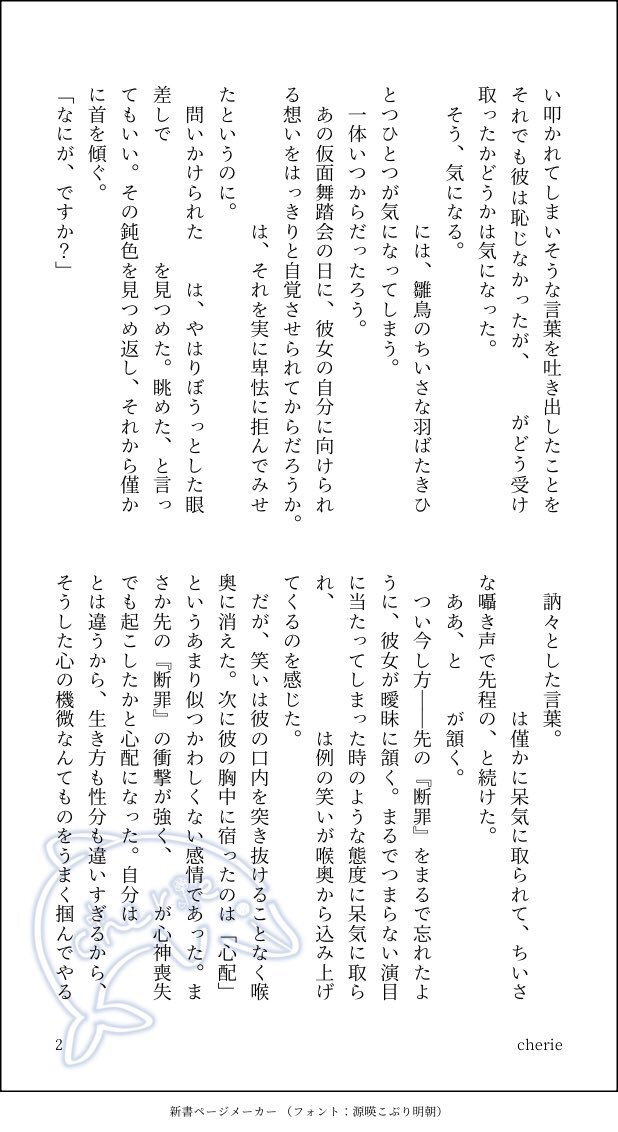 い叩かれてしまいそうな言葉を吐き出したことを
それでも彼は恥じなかったが、　　がどう受け
取ったかどうかは気になった。
　そう、気になる。
　　　　　には、雛鳥のちいさな羽ばたきひ
とつひとつが気になってしまう。
　一体いつからだったろう。
　あの仮面舞踏会の日に、彼女の自分に向けられ
る想いをはっきりと自覚させられてからだろうか。
　　　　　は、それを実に卑怯に拒んでみせ
たというのに。
　問いかけられた　　は、やはりぼうっとした眼
差しで　　　　　を見つめた。眺めた、と言っ
てもいい。その鈍色を見つめ返し、それから僅か
に首を傾ぐ。
「なにが、ですか？」
　訥々とした言葉。
　　　　　は僅かに呆気に取られて、ちいさ
な囁き声で先程の、と続けた。
　ああ、と　　が頷く。
　つい今し方――先の『断罪』をまるで忘れたよ
うに、彼女が曖昧に頷く。まるでつまらない演目
に当たってしまった時のような態度に呆気に取ら
れ、　　　　　は例の笑いが喉奥から込み上げ
てくるのを感じた。
　だが、笑いは彼の口内を突き抜けることなく喉
奥に消えた。次に彼の胸中に宿ったのは「心配」
というあまり似つかわしくない感情であった。ま
さか先の『断罪』の衝撃が強く、　　が心神喪失
でも起こしたかと心配になった。自分は
とは違うから、生き方も性分も違いすぎるから、
そうした心の機微なんてものをうまく掴んでやる
cherie
2
cherie
新書ページメーカー（フォント：源暎こぶり明朝）